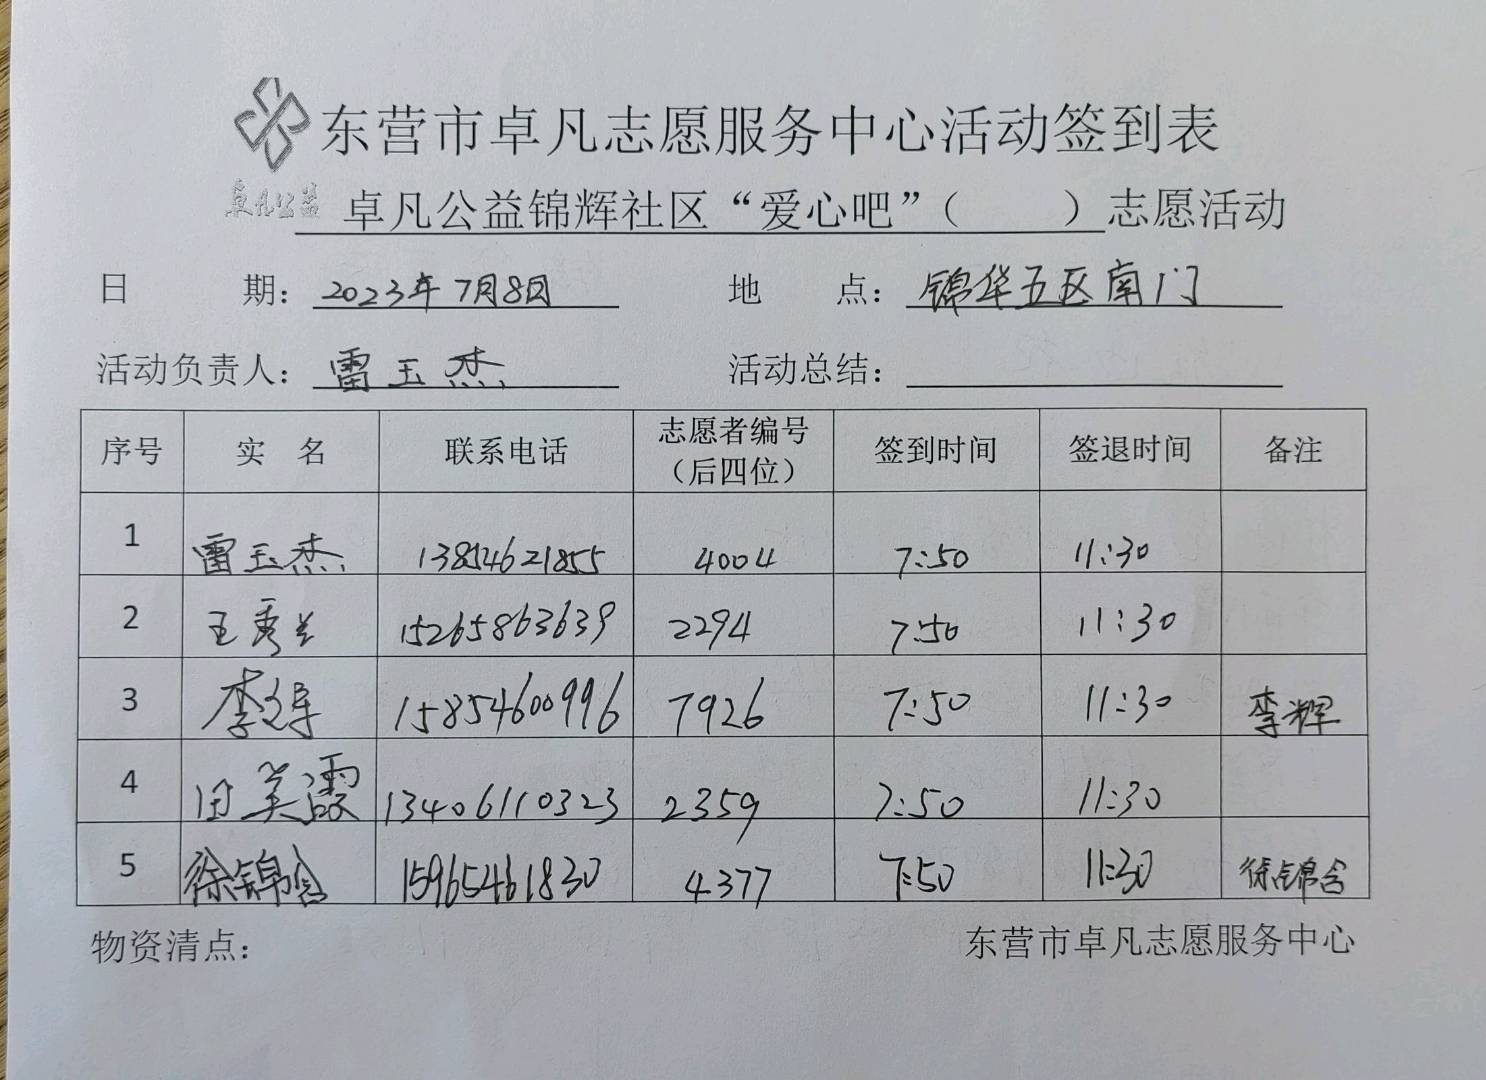 东营市卓凡志愿服务中心活动签到表
卓凡公益
卓凡公益锦辉社区“爱心吧”（ ）志愿活动
日 期：2023年7月8日 地 点：锦华五区南门
活动负责人：雷玉杰 活动总结：
序号 实 名 联系电话 志愿者编号（后四位） 签到时间 签退时间 备注
1 雷玉杰 13854621855 4004 7:50 11:30
2 王秀兰 15265863639 2294 7:50 11:30
3 李辉 15854600996 7926 7:50 11:30 李辉
4 田美霞 13406110323 2359 7:50 11:30
5 徐锦含 15965461830 4377 7:50 11:30 徐锦含
物资清点： 东营市卓凡志愿服务中心